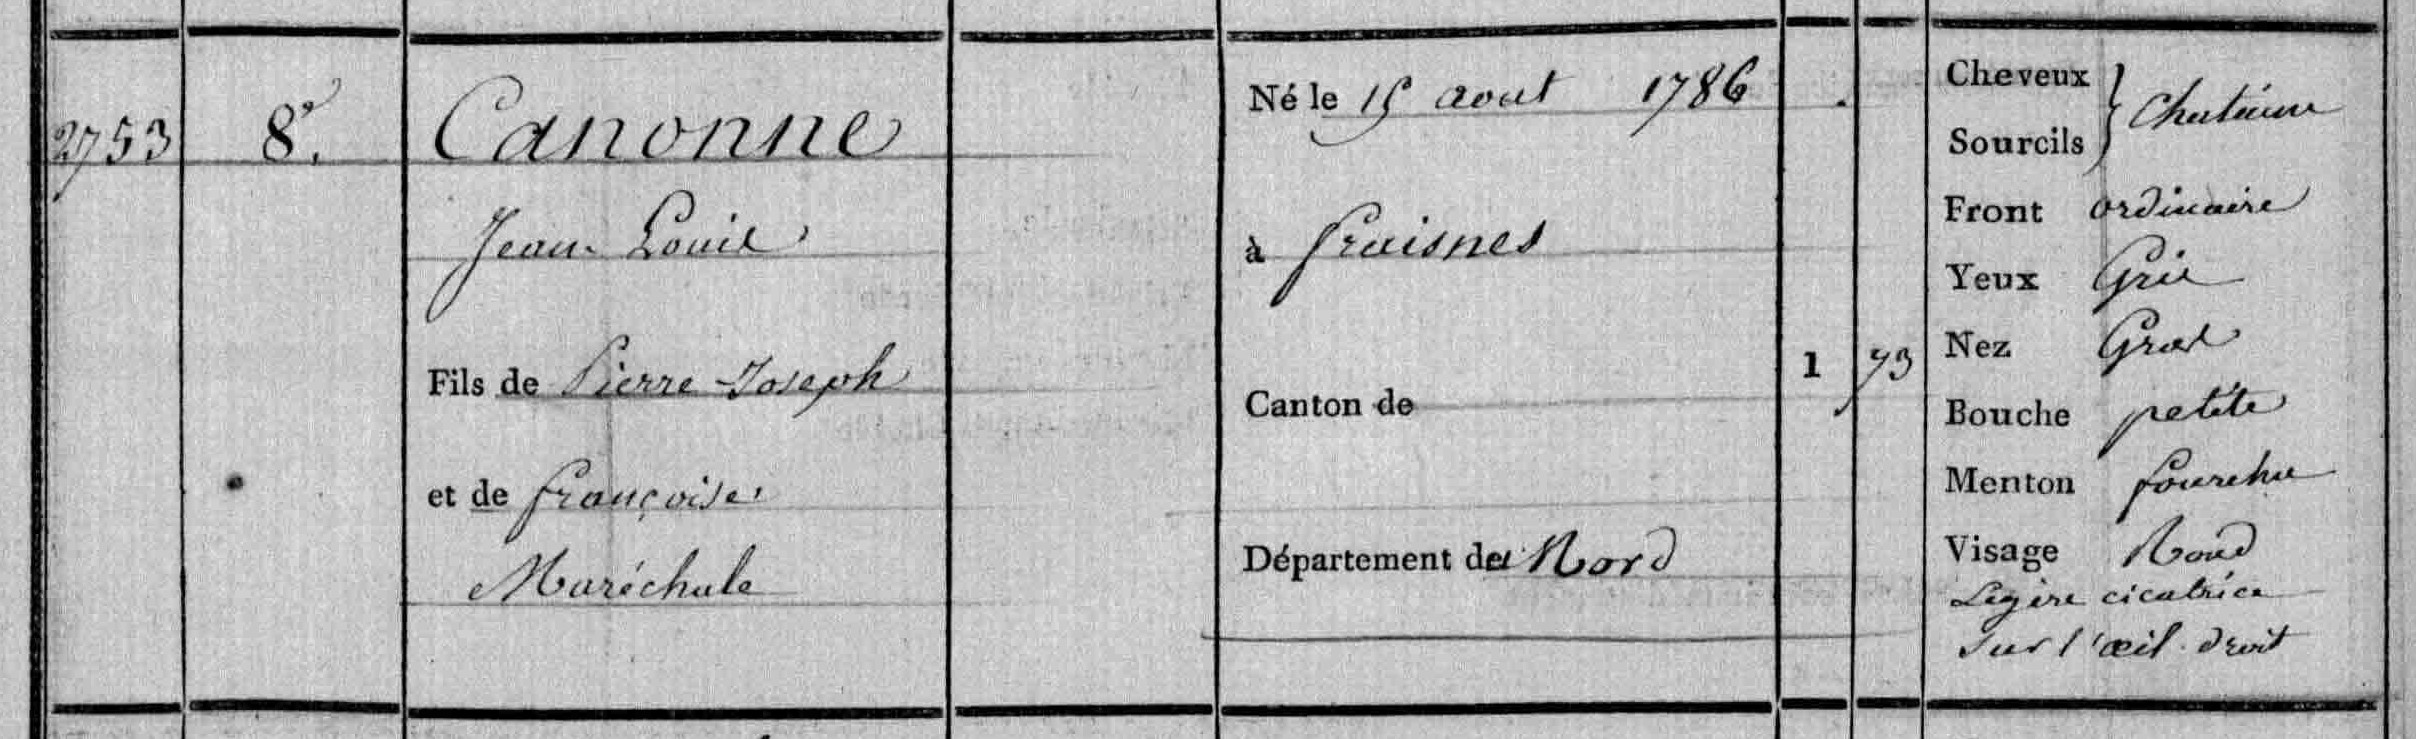 2753
8e.
Canonne
Jean Louis
Fils de Pierre-Joseph
et de françoise
Maréchale
Né le 15 aout 1786
à fraisnes
Canton de
Département du Nord
1 73
Cheveux
Sourcils } Chatains
Front ordinaire
Yeux Gris
Nez Gros
Bouche petite
Menton fourchu
Visage Rond
Legère cicatrice
sur l'œil droit